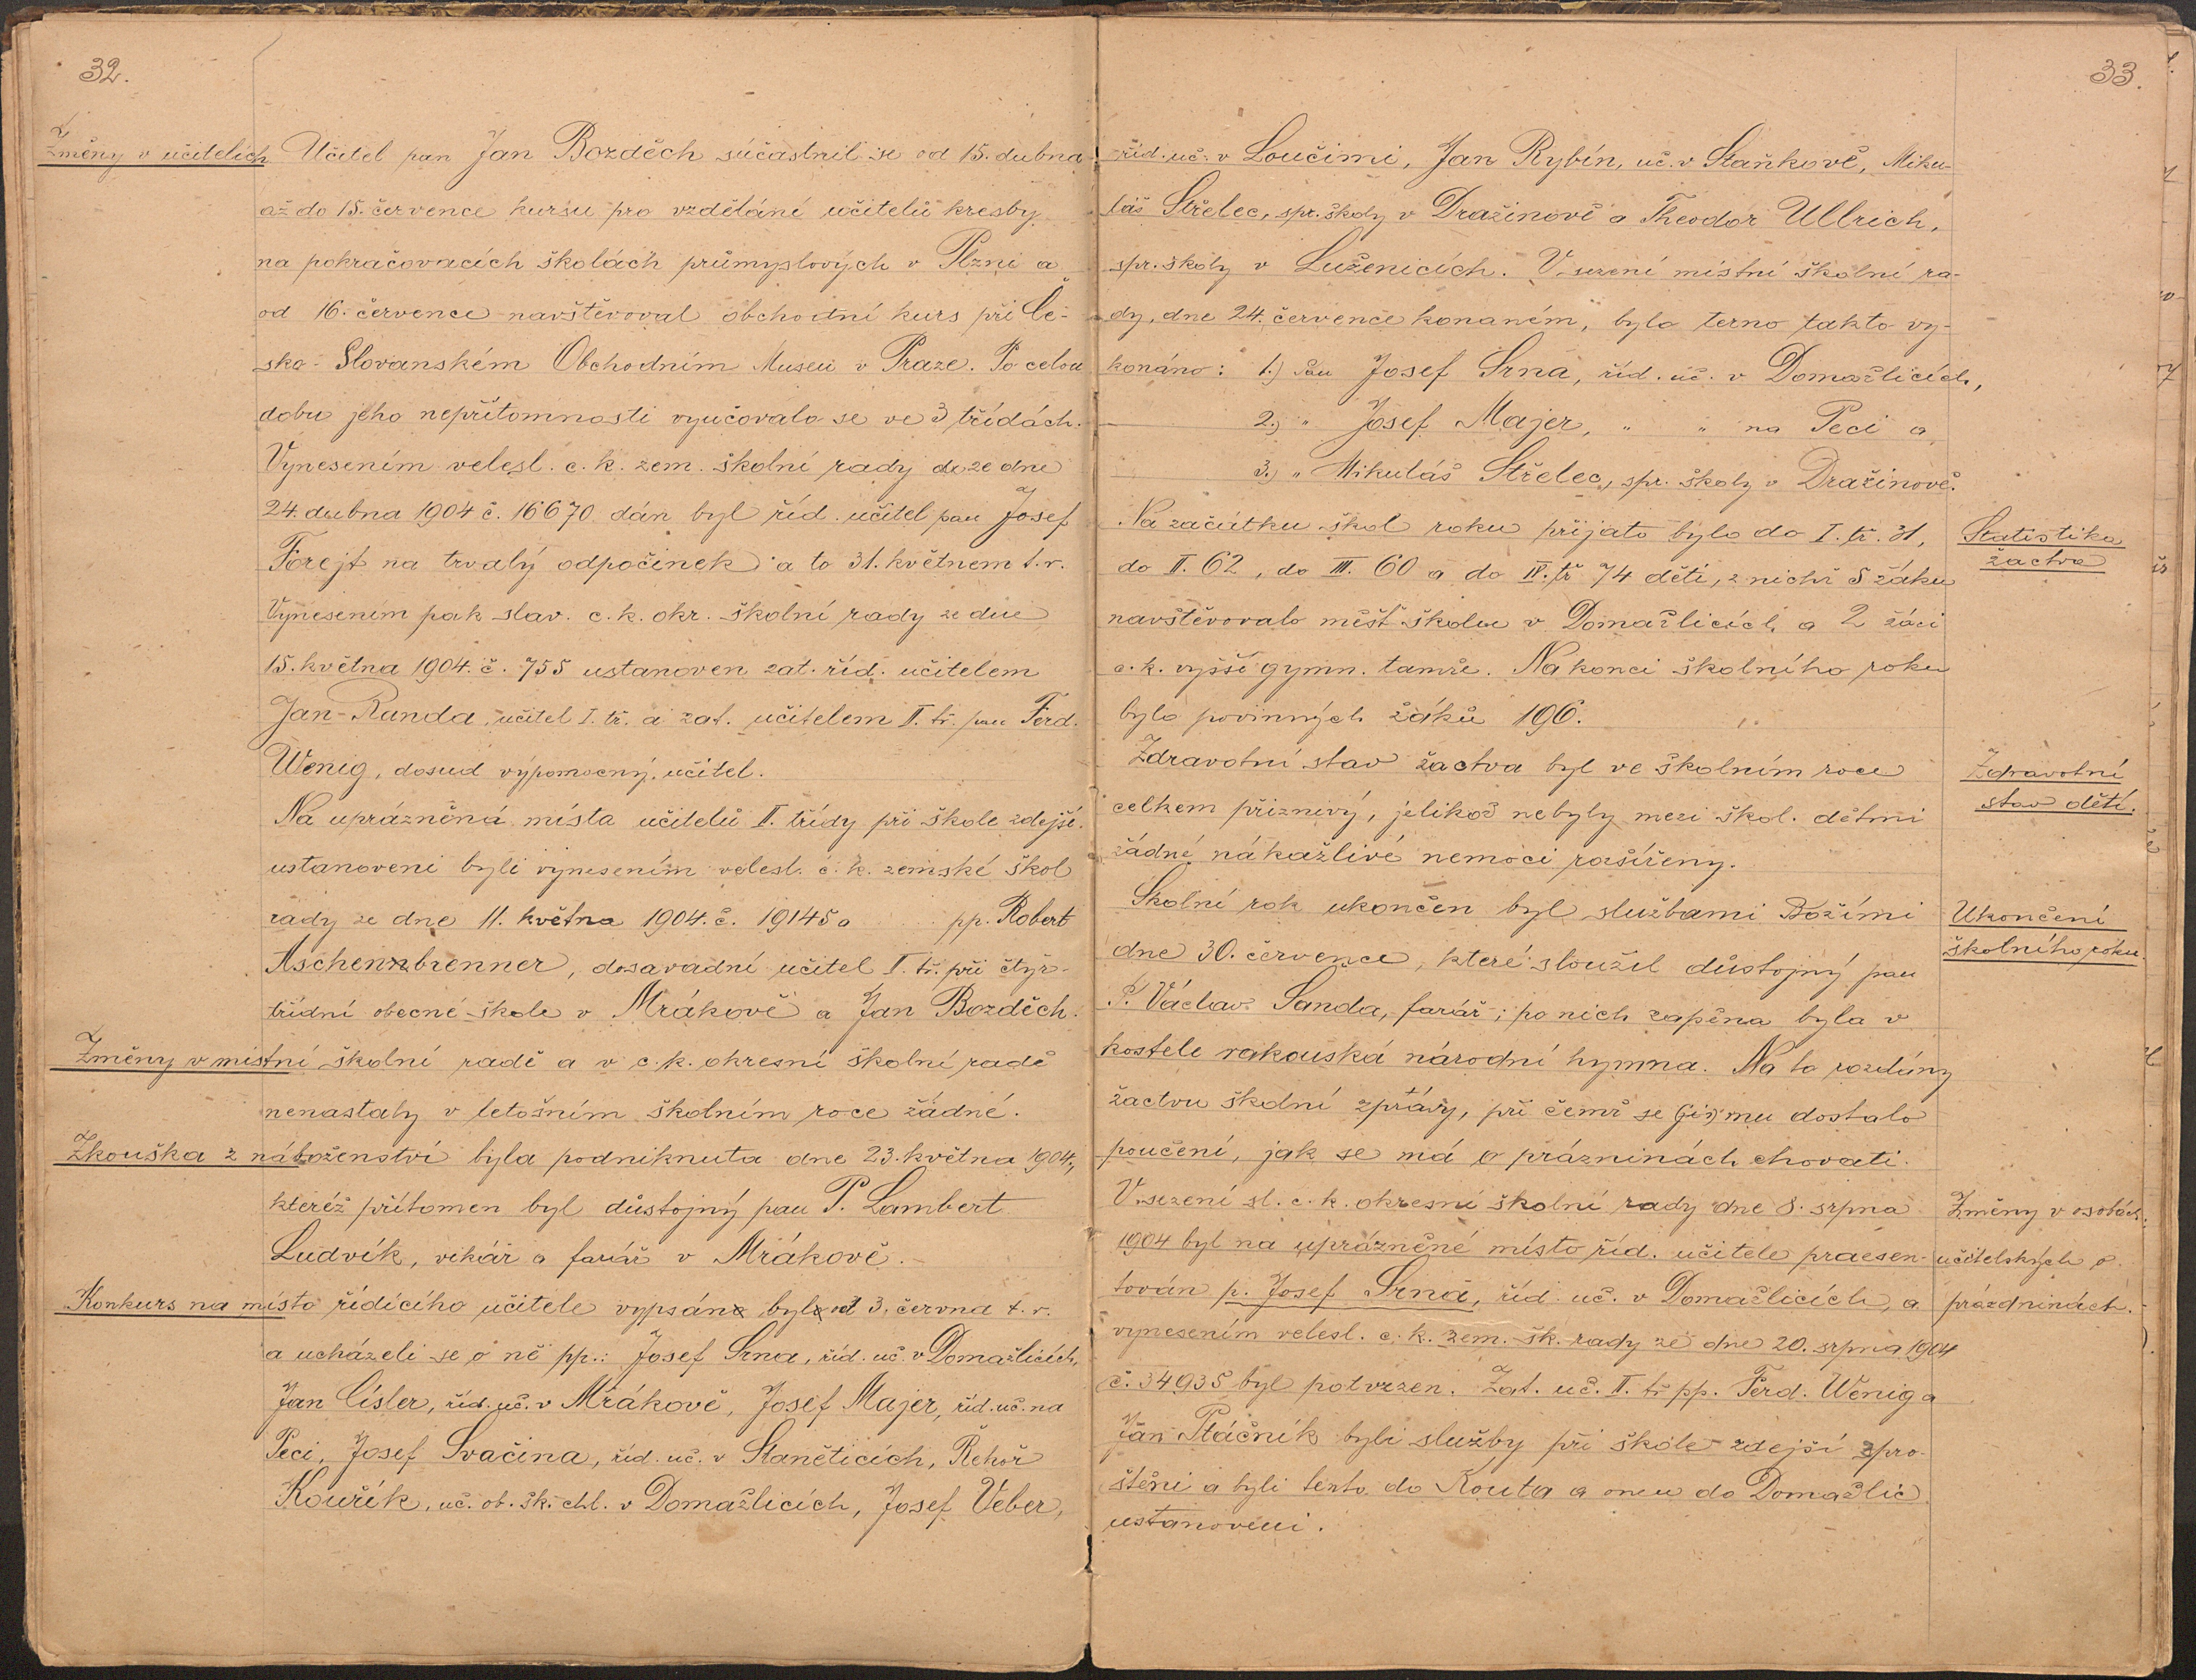 32.
Změny v učitelích Učitel pan Jan Bozděch súčastnil se od 15. dubna
až do 15. července kursu pro vzdělání učitelů kresby
na pokračovacích školách průmyslových v Plzni a
od 16. července navštěvoval obchodní kurs při Če-
sko-Slovanském Obchodním Museu v Praze. Po celou
dobu jeho nepřítomnosti vyučovalo se ve 3 třídách.
Vynesením velesl. c. k. zem. školní rady ze dne
24. dubna 1904 č. 16670 dán byl říd. učitel pan Josef
Forejt na trvalý odpočinek a to 31. květnem t. r.
Vynesením pak slav. c. k. okr. školní rady ze dne
15. května 1904. č. 755 ustanoven zat. říd. učitelem
Jan Randa, učitel I. tř. a zat. učitelem II. tř. pan Ferd.
Wenig, dosud výpomocný učitel.
Na uprázněná místa učitelů II. třídy při škole zdejší
ustanoveni byli vynesením velesl. c. k. zemské škol
rady ze dne 11. května 1904. č. 19145 a pp. Robert
Aschenbrenner, dosavadní učitel II. tř. při čtyř-
třídní obecné škole v Mrákově a Jan Bozděch.
Změny v místní školní radě a v c. k. okresní školní radě
nenastaly v letošním školním roce žádné.
Zkouška z náboženství byla podniknuta dne 23. května 1904,
kteréž přítomen byl důstojný pan P. Lambert
Ludvík, vikář a farář v Mrákově.
Konkurs na místo řídícího učitele vypsán byl od 3. června t. r.
a ucházeli se o ně pp.: Josef Srna, říd. uč. v Domažlicích,
Jan Císler, říd. uč. v Mrákově, Josef Majer, říd. uč. na
Peci, Josef Svačina, říd. uč. v Staněticích, Řehoř
Kouřík, uč. ob. šk. chl. v Domažlicích, Josef Veber,
33.
říd. uč. v Loučimi, Jan Rybín, uč. v Staňkově, Miku-
láš Střelec, spr. školy v Dražinově a Theodor Ullrich,
spr. školy v Luženicích. V sezení místní školní ra-
dy, dne 24. července konaném, bylo terno takto vy-
konáno: 1.) Pan Josef Srna, říd. uč. v Domažlicích,
2.) " Josef Majer, " " na Peci a
3.) " Mikuláš Střelec, spr. školy v Dražinově.
Na začátku škol roku přijato bylo do I. tř. 31,
Statistika
do II. 62, do III. 60 a do IV. tř 74 dětí, z nichž 5 žáků
žactva
navštěvovalo měšť. školu v Domažlicích a 2 žáci
c. k. vyšší gymn. tamže. Na konci školního roku
bylo povinných žáků 196.
Zdravotní stav žactva byl ve školním roce
Zdravotní
stav dětí.
celkem příznivý, jelikož nebyly mezi škol. dětmi
žádné nákažlivé nemoci rozšířeny.
Školní rok ukončen byl službami Božími
Ukončení
školního roku.
dne 30. července, které sloužil důstojný pan
P. Václav Sanda, farář; po nich zapěna byla v
kostele rakouská národní hymna. Na to rozdány
žactvu školní zprávy, při čemž se jemu dostalo
poučení, jak se má o prázninách chovati.
V sezení sl. c. k. okresní školní rady dne 8. srpna
Změny v osobách
1904 byl na uprázněné místo říd. učitele praesen-
učitelských o
tován p. Josef Srna, říd. uč. v Domažlicích, a
prázdninách.
vynesením velesl. c. k. zem. šk. rady ze dne 20. srpna 1904
č. 34935 byl potvrzen. Zat. uč. II. tř. pp. Ferd. Wenig a
Jan Ptáčník byli služby při škole zdejší spro-
štěni a byli tento do Kouta a onen do Domažlic
ustanoveni.